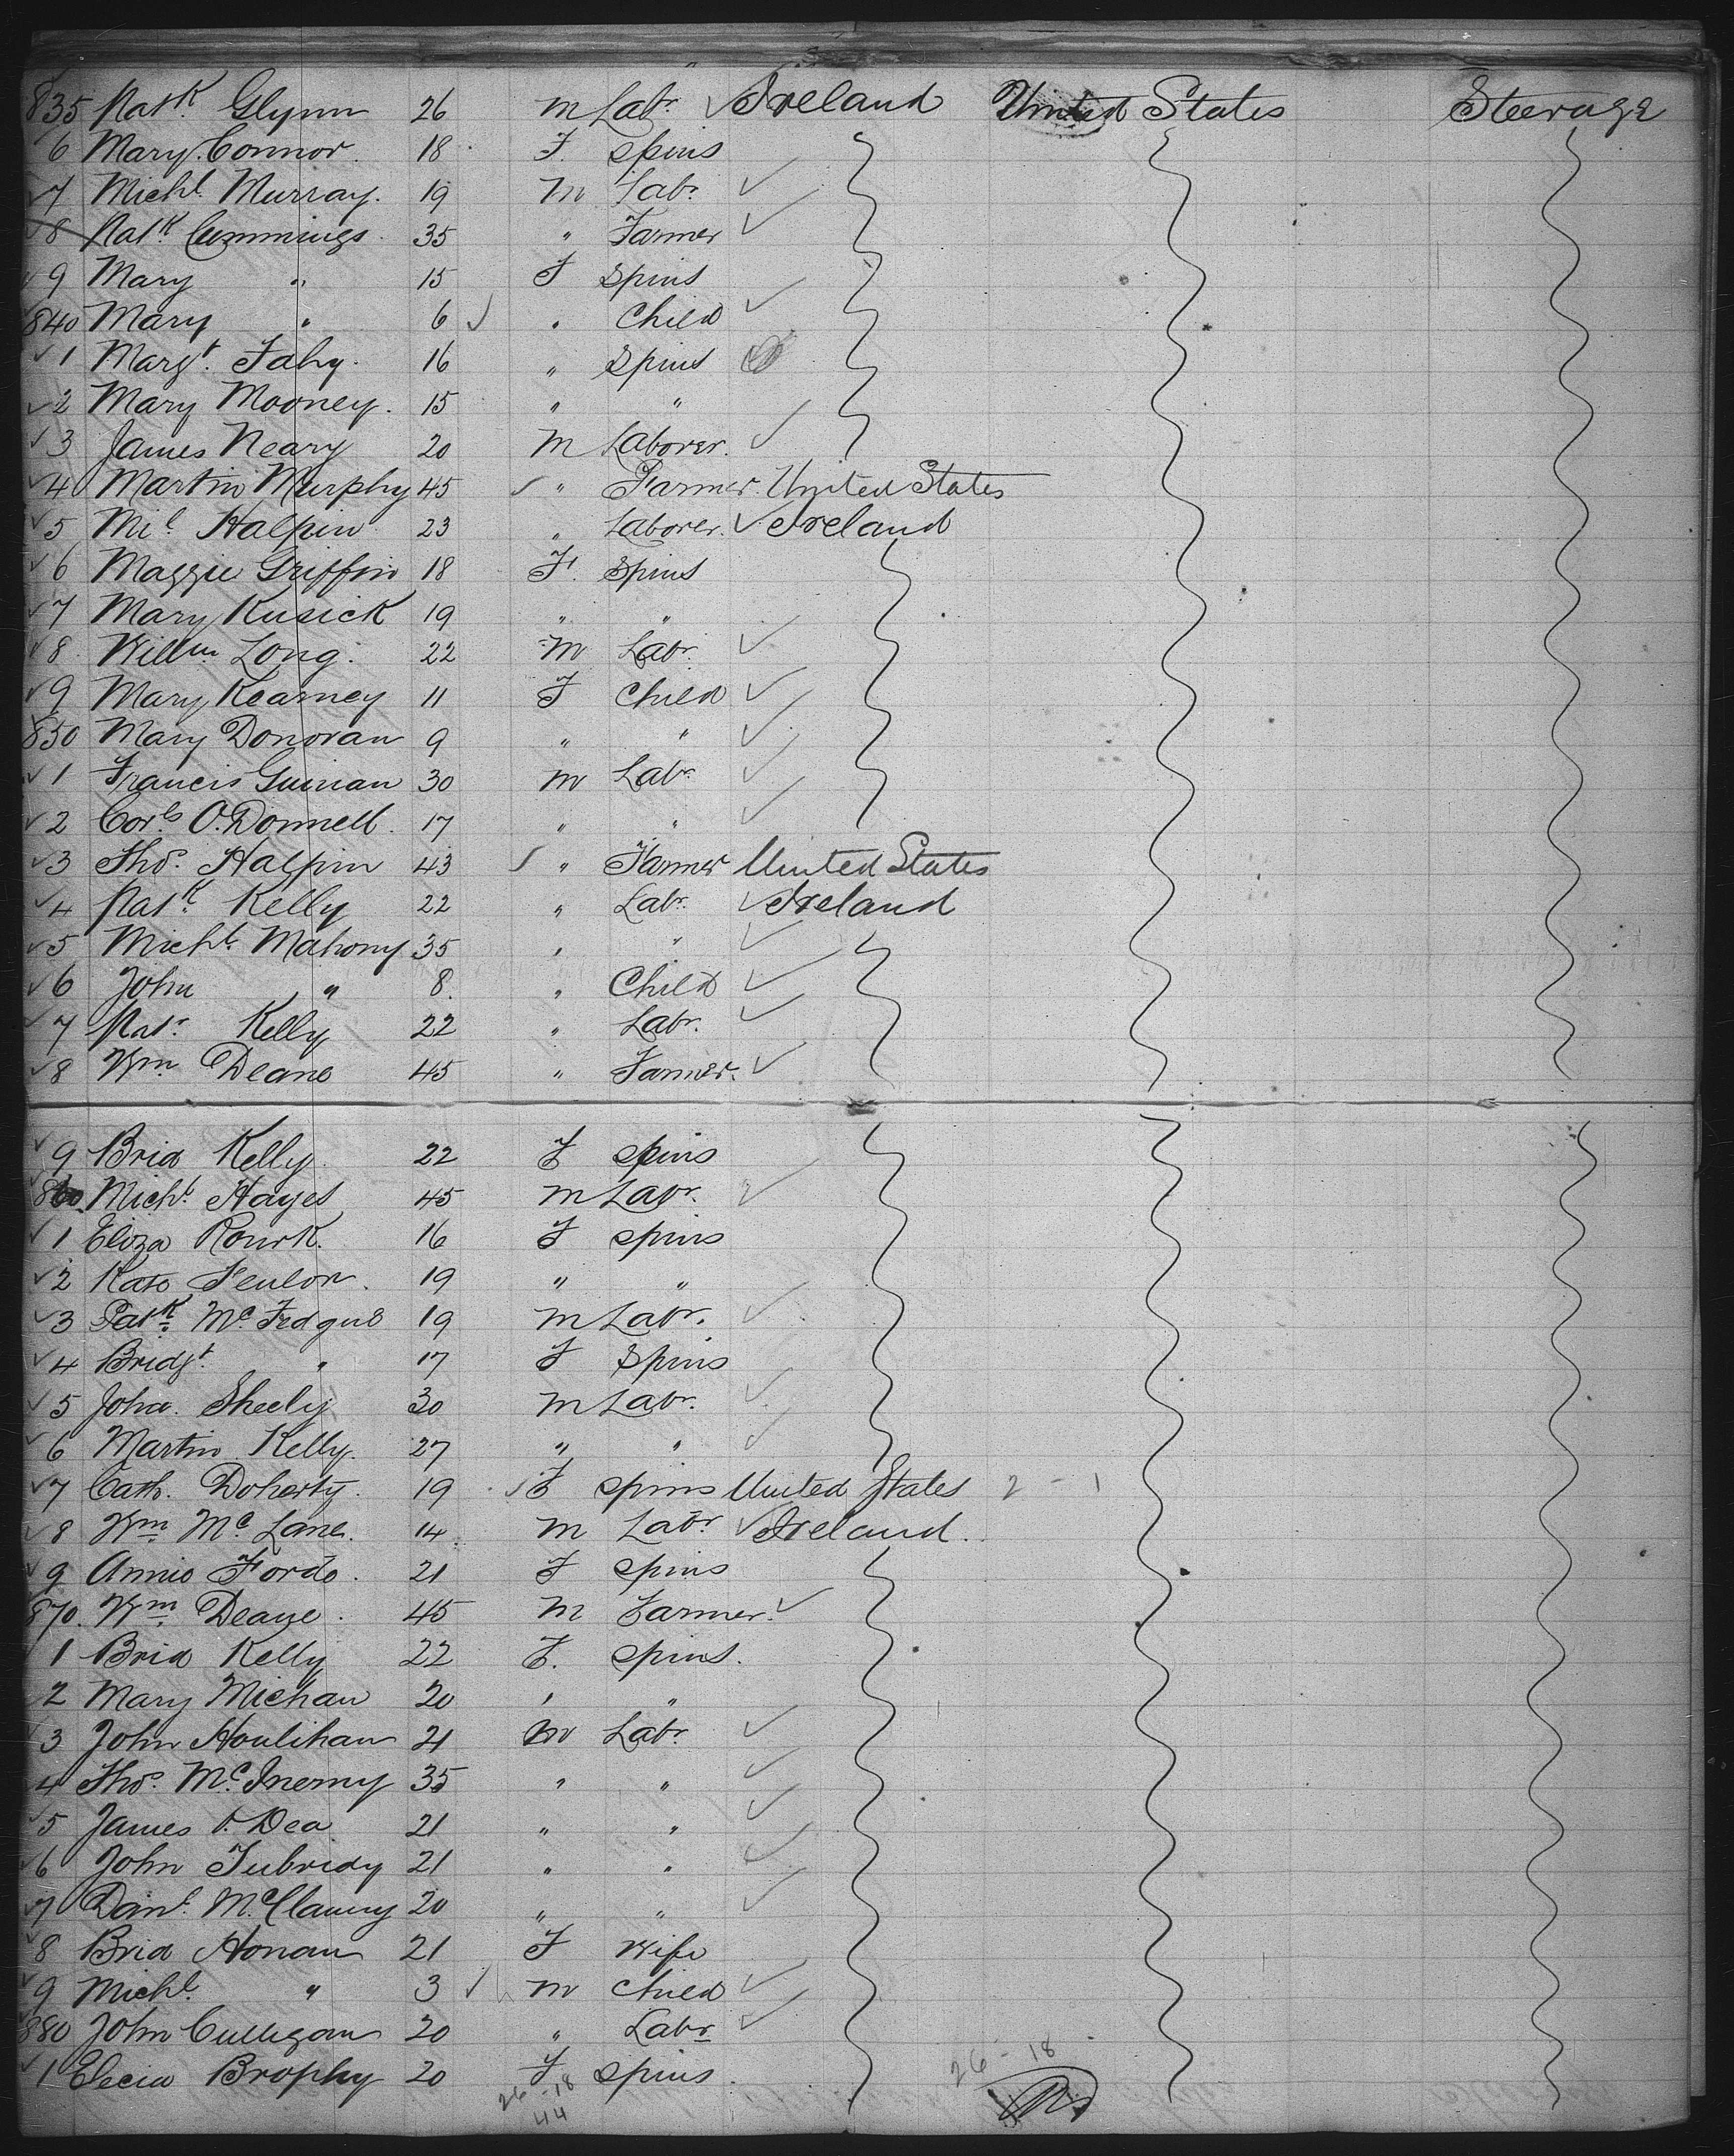 835 Patk. Glynn 26 m Labr. Ireland United States Steerage
6 Mary Connor 18 F. Spins
7 Michl. Murray. 19 m Labr.
8 Patk. Cummings 35 " Farmer
9 Mary " 15 F Spins
840 Mary " 6 " Child
1 Margt. Fahy. 16 " Spins
2 Mary Mooney. 15 " "
3 James Neary 20 m Laborer.
4 Martin Murphy 45 " Farmer. United States
5 Mil. Halpin 23 " Laborer. Ireland
6 Maggie Griffin 18 F. Spins
7 Mary Kusick 19 " "
8 Willm. Long. 22 m Labr.
9 Mary Kearney 11 F Child
850 Mary Donovan 9 " "
1 Francis Guinan 30 m Labr.
2 Corls. O.Donnell. 17 " "
3 Thos. Halpin 43 " Farmer United States
4 Patk. Kelly 22 " Labr. Ireland
5 Michl. Mahony 35 " "
6 John " 8. " Child
7 Patr. Kelly 22 " Labr.
8 Wm. Deane 45 " Farmer.
9 Brid Kelly 22 F Spins
860. Michl. Hayes 45 m Labr.
1 Eliza Rourk. 16 F Spins
2 Kate Fenlon. 19 " "
3 Patk. 19 m Labr.
4 Bridgt. " 17 F Spins
5 John. Sheely 30 m Labr.
6 Martin Kelly. 27 " "
7 Cath. Doherty. 19 F Spins United States 2 - 1
8 Wm. Mc Lane. 14 m Labr. Ireland.
9 Annie Forde. 21 F Spins
870. Wm. Deane. 45 m Farmer.
1 Brid Kelly 22 F. Spins.
2 Mary Michan 20 " "
3 John Houlihan 21 m Labr.
4 Thos. Mc.Inerny 35 " "
5 James O.Dea 21 " "
6 John Tubridy 21 " "
7 Danl. 20 " "
8 Brid Honan 21 F Wife
9 Michl. " 3 m Child
880 John Culligan 20 " Labr
1 Elecia Brophy 20 F Spins.
26 - 18 26 - 18
44